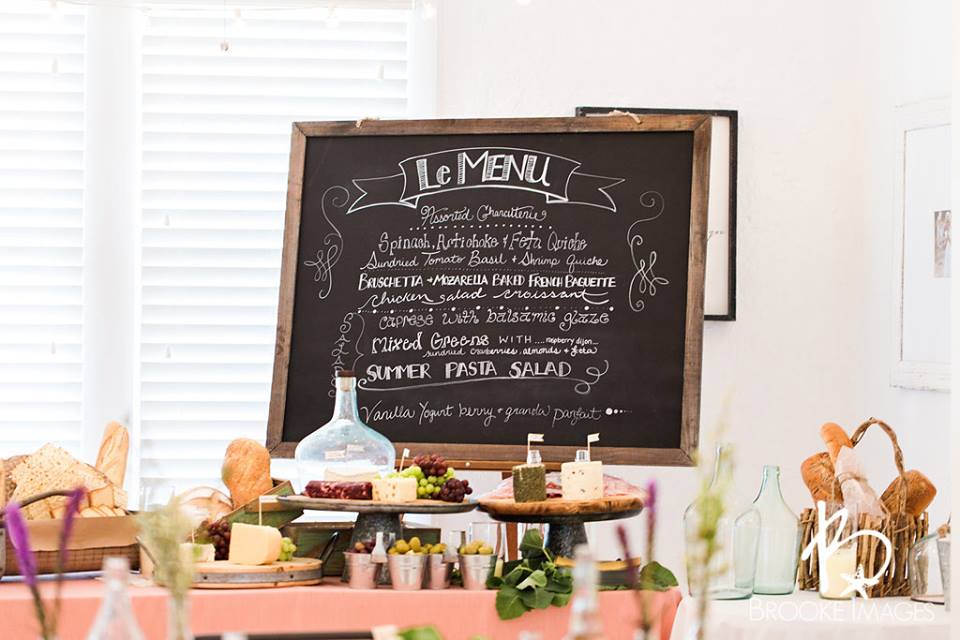 Le MENU
Assorted Charcutterie
Spinach, Artichoke & Feta Quiche
Sundried Tomato Basil & Shrimp Quiche
BRUSCHETTA & MOZARELLA BAKED FRENCH BAGUETTE
chicken salad croissant
caprese with balsamic glaze
Mixed Greens WITH .... raspberry dijon...
sundried cranberries, almonds & feta
SUMMER PASTA SALAD
Vanilla Yogurt berry & granola parfait
BROOKE IMAGES